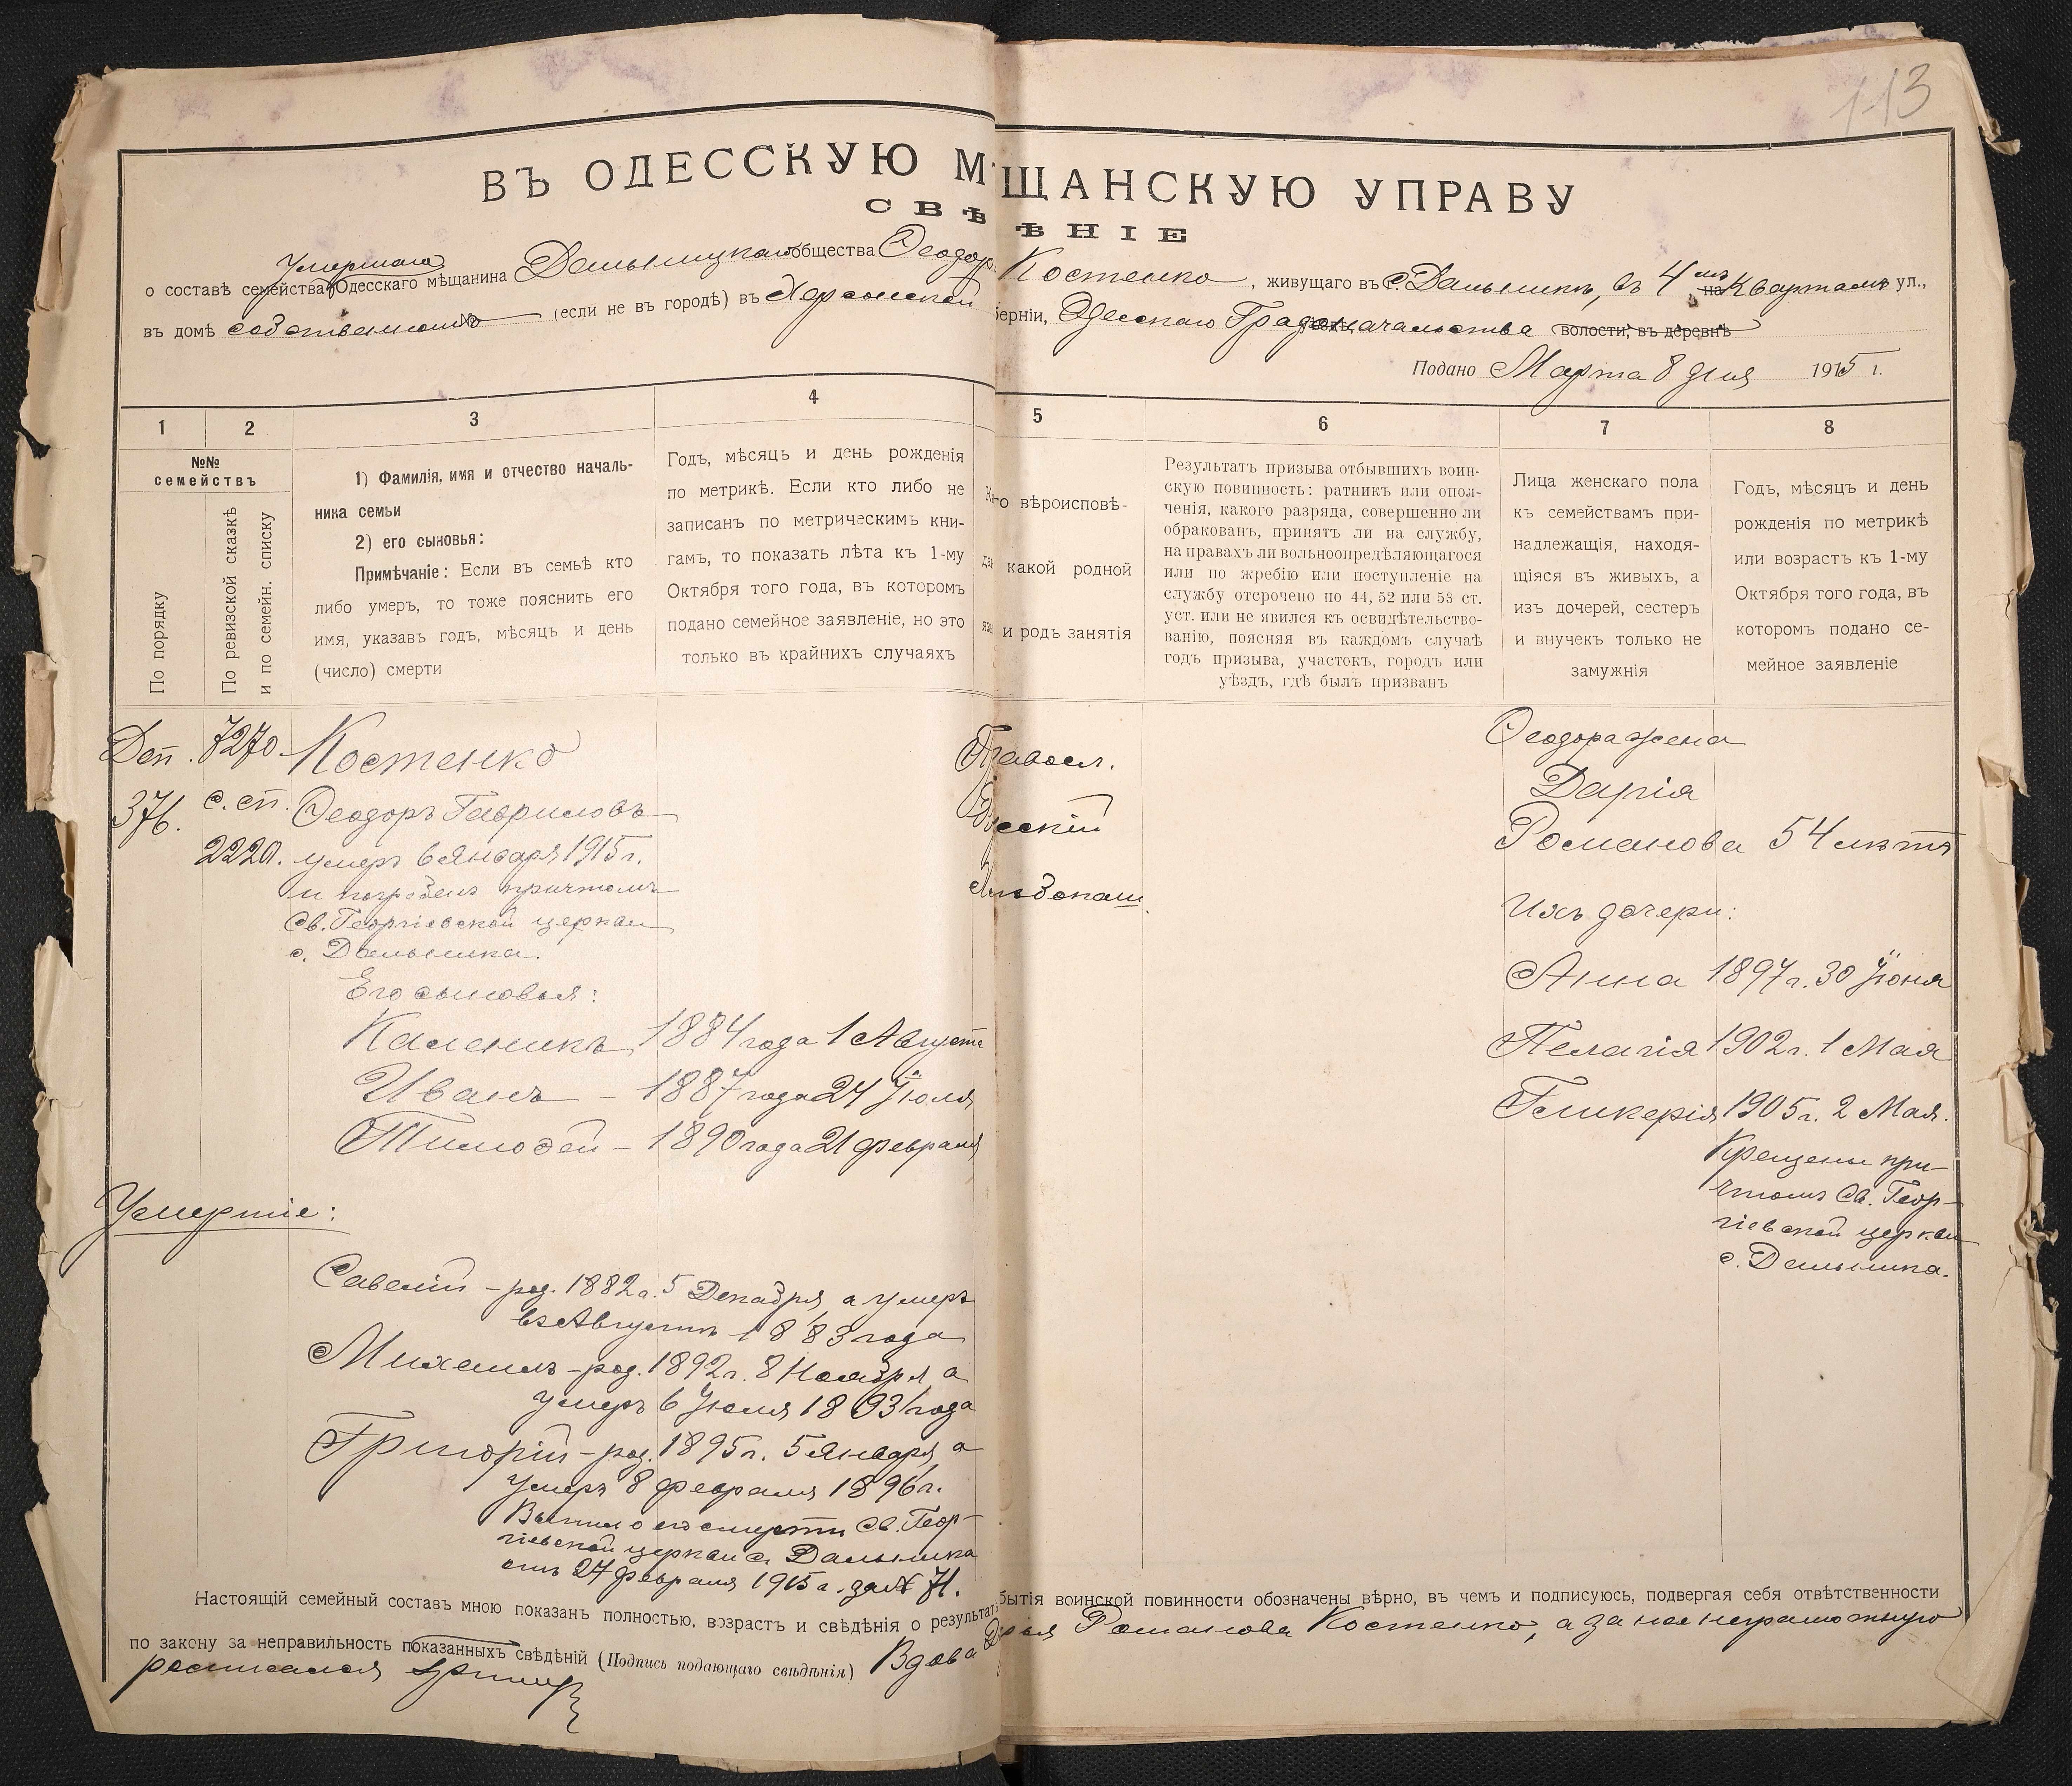 113
ВЪ ОДЕССКУЮ МѢЩАНСКУЮ УПРАВУ
СВѢДѢНІЕ
Умершаго
о составѣ семейства Одесскаго мѣщанина Дальницкаго общества Ѳеодора Костенко, живущаго въ с. Дальникѣ, въ 4мъ на Кварталѣ ул.,
въ домѣ собственномъ (если не въ городѣ) въ Херсонской губерніи, Одесскаго Градоначальства волости, въ деревнѣ
Подано Марта 8 дня 1915 г.
1 2 3 4 5 6 7 8
№№ семействъ
По порядку
По ревизской сказкѣ
и по семейн. списку
1) Фамилія, имя и отчество началь-
ника семьи
2) его сыновья:
Примѣчаніе: Если въ семьѣ кто
либо умеръ, то тоже пояснить его
имя, указавъ годъ, мѣсяцъ и день
(число) смерти
Годъ, мѣсяцъ и день рожденія
по метрикѣ. Если кто либо не
записанъ по метрическимъ кни-
гамъ, то показать лѣта къ 1-му
Октября того года, въ которомъ
подано семейное заявленіе, но это
только въ крайнихъ случаяхъ
вѣроисповѣ-
какой родной
и родъ занятія
Результатъ призыва отбывшихъ воин-
скую повинность: ратникъ или опол-
ченія, какого разряда, совершенно ли
обракованъ, принятъ ли на службу,
на правахъ ли вольноопредѣляющагося
или по жребію или поступленіе на
службу отсрочено по 44, 52 или 53 ст.
уст. или не явился къ освидѣтельство-
ванію, поясняя въ каждомъ случаѣ
годъ призыва, участокъ, городъ или
уѣздъ, гдѣ былъ призванъ
Лица женскаго пола
къ семействамъ при-
надлежащія, находя-
щіяся въ живыхъ, а
изъ дочерей, сестеръ
и внучекъ только не
замужнія
Годъ, мѣсяцъ и день
рожденія по метрикѣ
или возрастъ къ 1-му
Октября того года, въ
которомъ подано се-
мейное заявленіе
Деп. 7270. Костенко
376. с. сп. Ѳеодоръ Гавриловъ
2220. умеръ 6 Января 1915 г.
и погребенъ причтомъ
Св. Георгіевской церкви
с. Дальника.
Его сыновья:
Каленикъ 1884 года 1 Августа
Иванъ – 1887 года 24 Іюля
Тимофей – 1890 года 21 февраля
Умершіе:
Савелій – род. 1882 г. 5 Декабря, а умеръ
въ Августѣ 1883 года
Михаилъ – род. 1892 г. 8 Ноября, а
умеръ 6 Іюля 1893 года
Григорій – род. 1895 г. 5 Января, а
умеръ 8 февраля 1896 г.
о его смерти Св. Геор-
гіевской церкви с. Дальника
отъ 27 февраля 1915 г. за № 71.
Правосл.
Русскій
Хлѣбопаш.
Ѳеодора жена
Дарія
Романова 54 лѣтъ
Ихъ дочери:
Анна 1897 г. 30 Іюня
Пелагія 1902 г. 1 Мая
Гликерія 1905 г. 2 Мая.
Крещены при-
чтомъ Св. Геор-
гіевской церкви
с. Дальника.
Настоящій семейный составъ мною показанъ полностью, возрастъ и свѣдѣнія о результатѣ отбытія воинской повинности обозначены вѣрно, въ чемъ и подписуюсь, подвергая себя отвѣтственности
по закону за неправильность показанныхъ свѣдѣній (Подпись подающаго свѣдѣнія) Вдова Дарья Романова Костенко, а за нее неграмотную
росписался